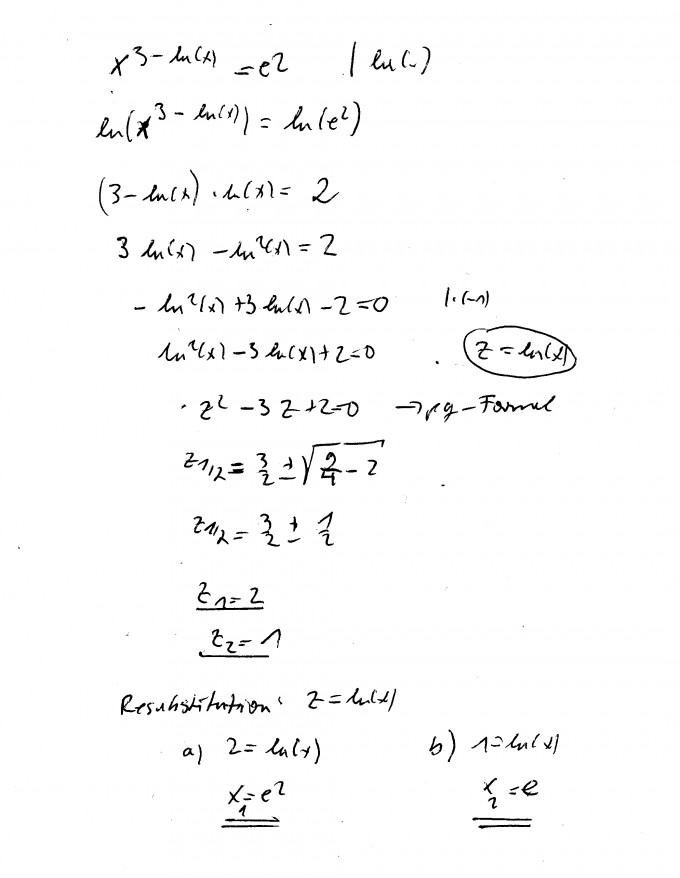 x^(3-ln(x)) = e^2 | ln(..)
ln(x^(3-ln(x))) = ln(e^2)
(3-ln(x)) · ln(x) = 2
3 ln(x) - ln^2(x) = 2
- ln^2(x) + 3 ln(x) - 2 = 0 |·(-1)
ln^2(x) - 3 ln(x) + 2 = 0 z = ln(x)
z^2 - 3z + 2 = 0 → pq-Formel
z1/2 = 3/2 ± √(9/4 - 2)
z1/2 = 3/2 ± 1/2
z1 = 2
z2 = 1
Resubstitution: z = ln(x)
a) 2 = ln(x) b) 1 = ln(x)
x1 = e^2 x2 = e